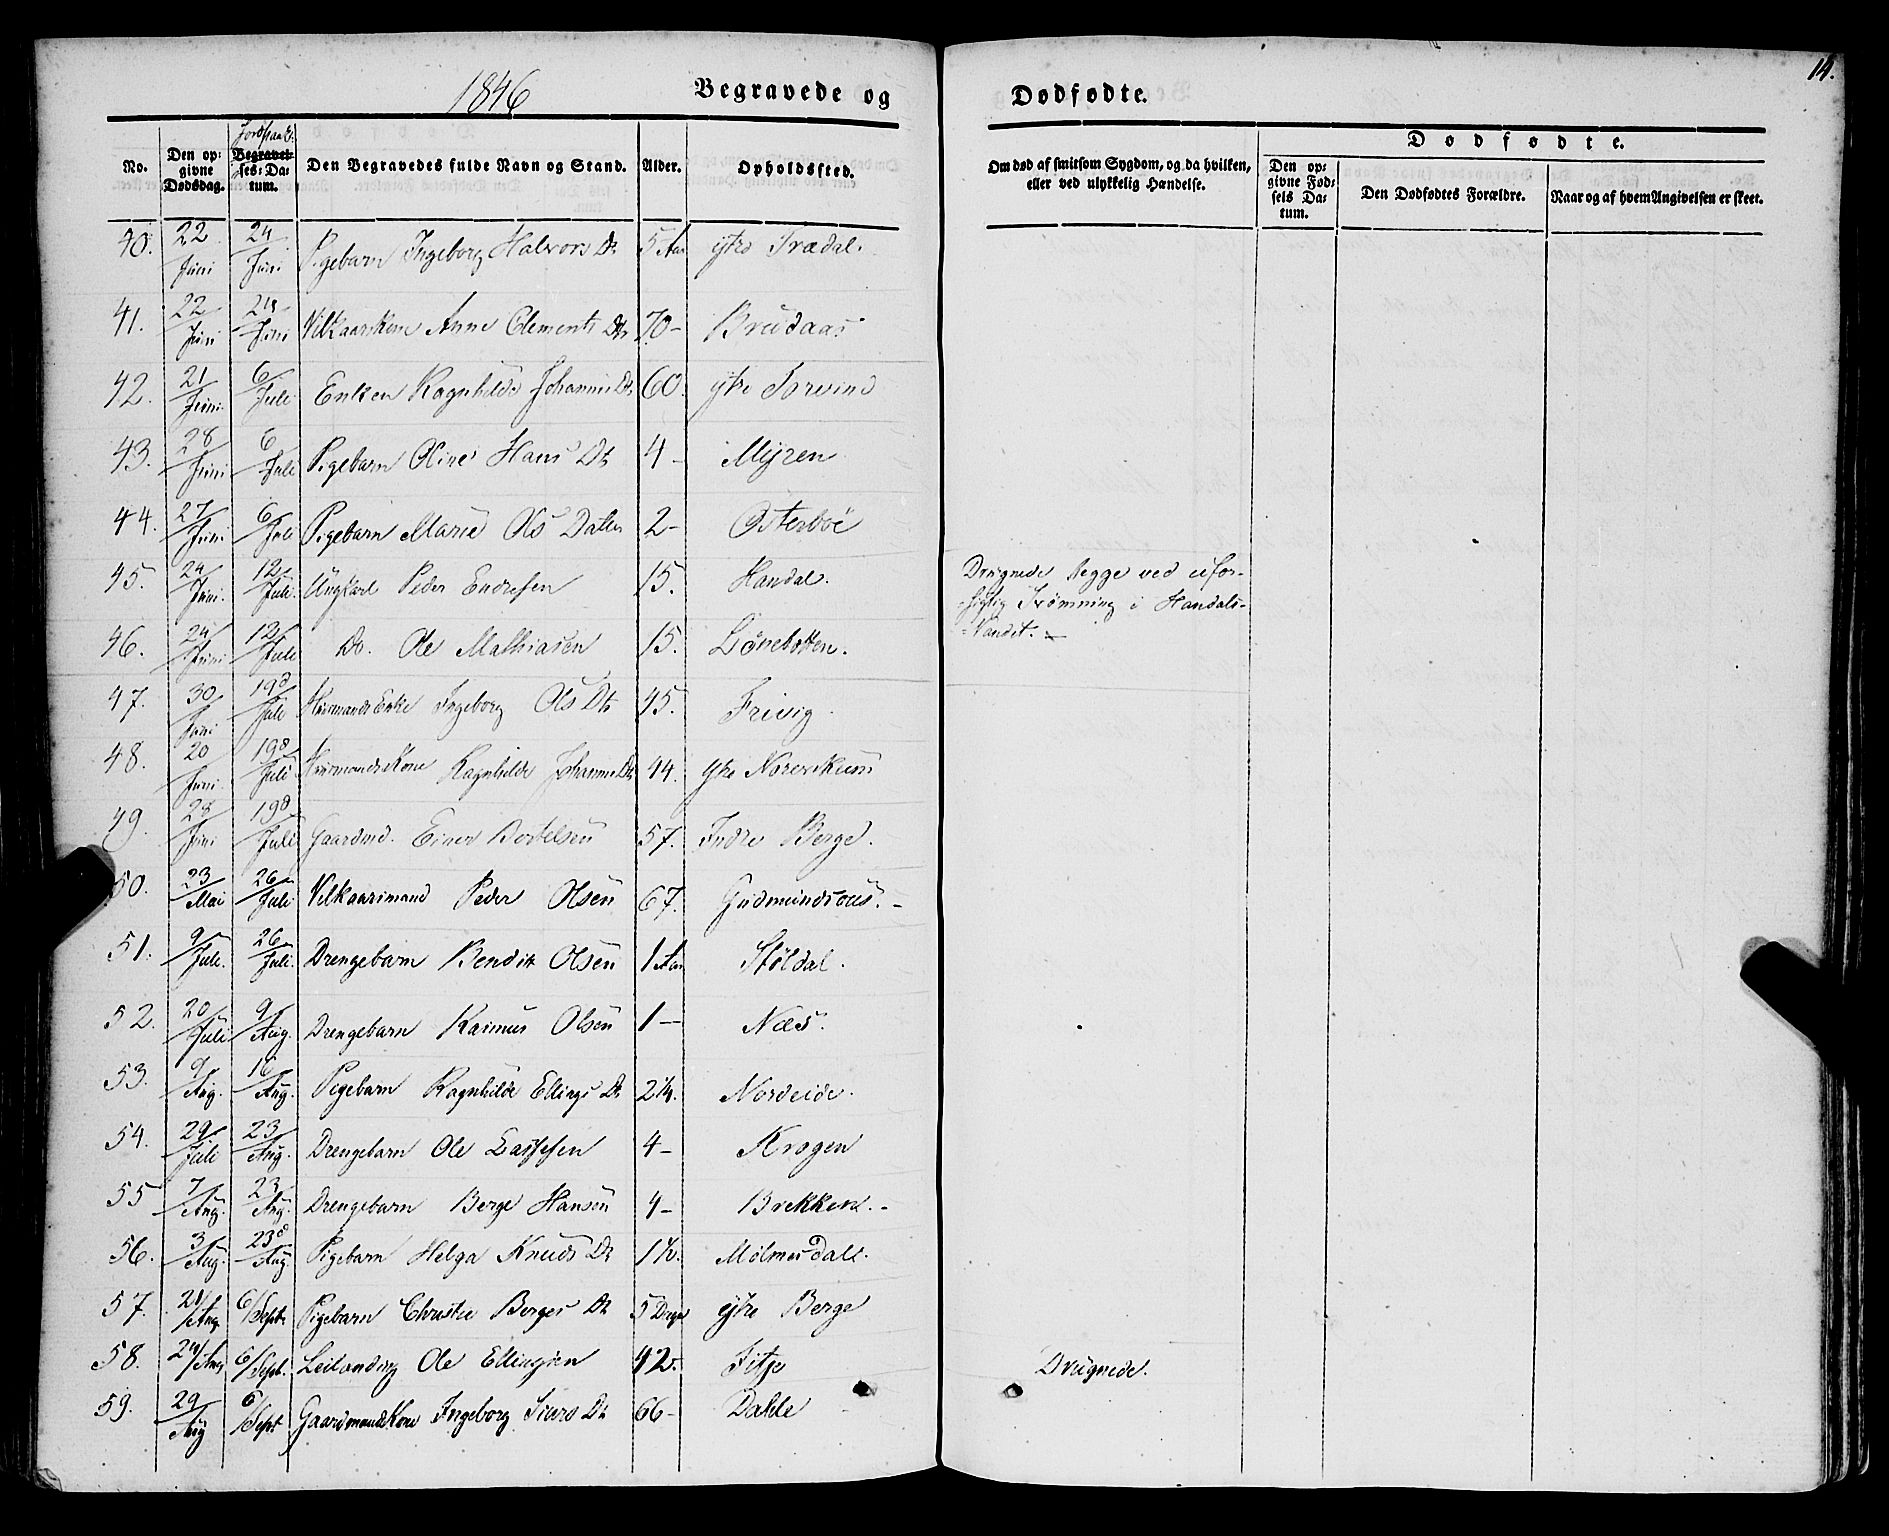 1846
Begravede og
Dødfødte.
14.
No.
Den opgivne Dødsdag.
Jordpaak: Begravelses-Datum.
Den Begravedes fulde Navn og Stand.
Alder.
Opholdssted.
Om død af smitsom Sygdom, og da hvilken, eller ved ulykkelig Hændelse.
Dødfødte.
Den opgivne Fødsels Datum.
Den Dødfødtes Forældre.
Naar og af hvem Angivelsen er skeet.
40. 22/Juni 24/Juni Pigebarn Ingeborg Halvors Dr 5 Aar ytre Trædal.
41. 22/Juni 24/Juni Vilkaarskone Anne Clements Dtr 70- Brudaas
42. 21/Juni 6/Juli Enken Ragnhilde Johannis Dr 60. ytre Torvind
43. 28/Juni 6/Juli Pigebarn Oline Hans Dtr 4- Myren
44. 27/Juni 6/Juli Pigebarn Marie Ols Datter 2- Osterboe
45. 24/Juni 12/Juli Ungkarl Peder Endresen 15. Handal. Drugnede begge ved ufor-
-sigtig Svømning i Handals-
-Vandet.
46. 24/Juni 12/Juli Do. Ole Mathiasen 15. Lønebotten.
47. 30/Juni 19d/Juli Huusmands Enke Ingeborg Ols Dtr 45. Frivig.
48. 20/Juni 19d/Juli Huusmands Kone Ragnhilde Johannis Dr 44. ytre
49. 28/Juni 19d/Juli Gaardmd. Einer Bertelsen 57. Indre Berge.
50. 23/Mai 26/Juli Vilkaarsmand Peder Olsen 67.
51. 9/Juli. 26/Juli. Drengebarn Bendik Olsen 1 Aar Støldal.
52. 20/Juli 9/Aug. Drengebarn Rasmus Olsen 1— Næs.
53. 9/Aug. 16/Aug. Pigebarn Ragnhilde Ellings Dr 2¼. Nordeide.
54. 29/Juli 23/Aug. Drengebarn Ole Lassesen 4- Krogen
55 7/Aug. 23/Aug. Drengebarn Berge Hansen 4- Brekken.-
56. 3/Aug. 23d/Aug. Pigebarn Helga Knuds Dr 1½. Mølmesdale.
57. 21/Aug 6/Septr Pigebarn Christie Berges Dr 5 Dage ytre Berge
58. 24/Aug 6/Sept. Leilending Ole Ellingsen 42. Fitje Drugnede.
59. 29/Aug 6/Sept Gaardmands Kone Ingeborg Siurs Dr 66- Dahle